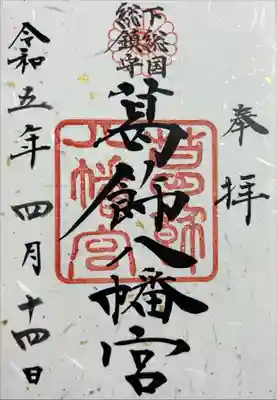 奉拝
下総国
総鎮守
葛飾八幡宮
葛飾
八幡宮
令和五年 四月 十四日